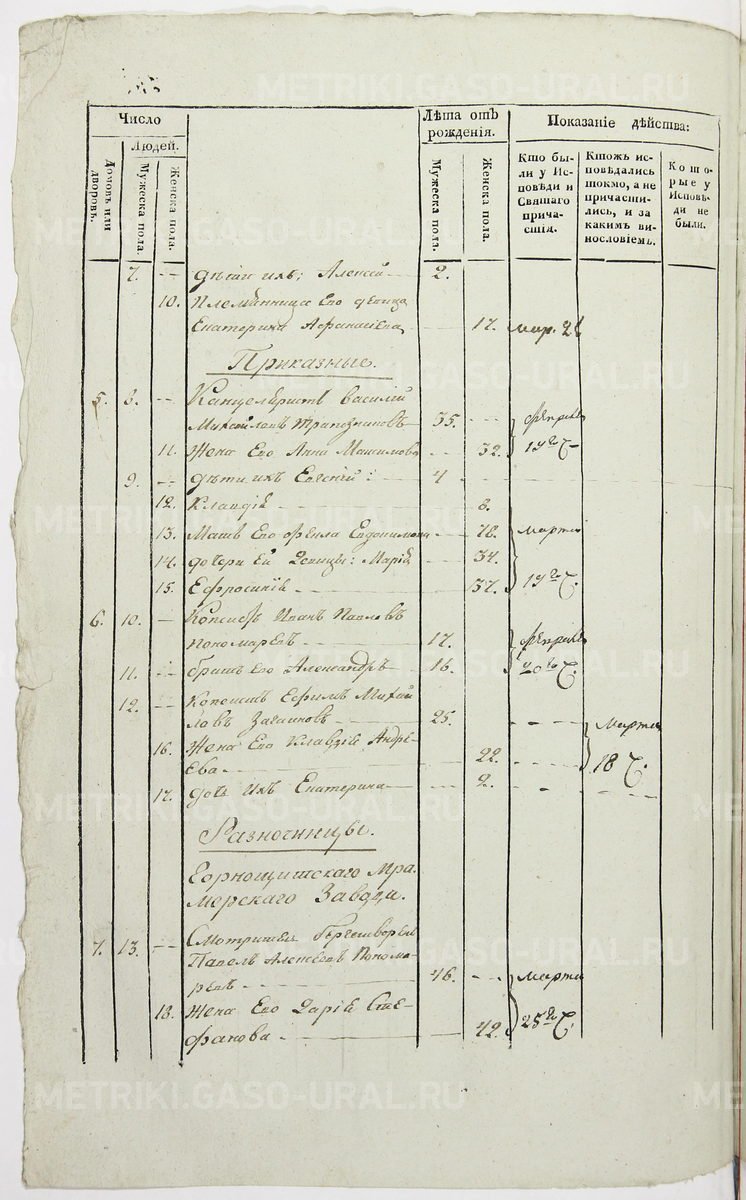 METRIKI.GASO-URAL.RU
Число
Людей.
Домовъ или дворовъ.
Мужеска пола.
Женска пола.
Лѣта отъ рожденія.
Мужеска пола.
Женска пола.
Показаніе дѣйства:
Кто бы-
ли у Ис-
повѣди и
Святаго
прича-
стія.
Ктожъ ис-
повѣдались
токмо, а не
причасти-
лись, и за
какимъ ви-
нословіемъ.
Кото-
рые у
Исповѣ-
ди не
были.
7. дѣти ихъ: Алексѣй 2.
10. Племянница Его девица
Екатерина Афанасіева 17. Мар. 21
Приказные.
5. 8. Канцеляристъ Василій
Михайловъ Трапезниковъ 35. февраля
11. Жена Его Анна Максимова 32. 19го Ч.
9. дѣти ихъ Евгеній: 4
12. Клавдія 8.
13. Мать Его Фекла Евдокимова 78. марта
14. дочери Ея Девицы: Марія 34.
15. Ефросинія 37. 19го Ч.
6. 10. Копеистъ Иванъ Павловъ
Пономаревъ 17. февраля
11. братъ Его Александръ 16. 20го Ч.
12. Копеистъ Ефимъ Михай
ловъ 25. Марта
16. Жена Его Клавдія Андре-
Ева 22. 18 Ч.
17. дочь Ихъ Екатерина 2.
Разночинцы.
Горнощитскаго Мра-
мерскаго Завода.
7. 13. Смотритель
Павелъ Алексѣевъ Понома-
ревъ 46. марта
18. Жена Его Дарія Сте-
фанова 42. 25го Ч.
METRIKI.GASO-URAL.RU